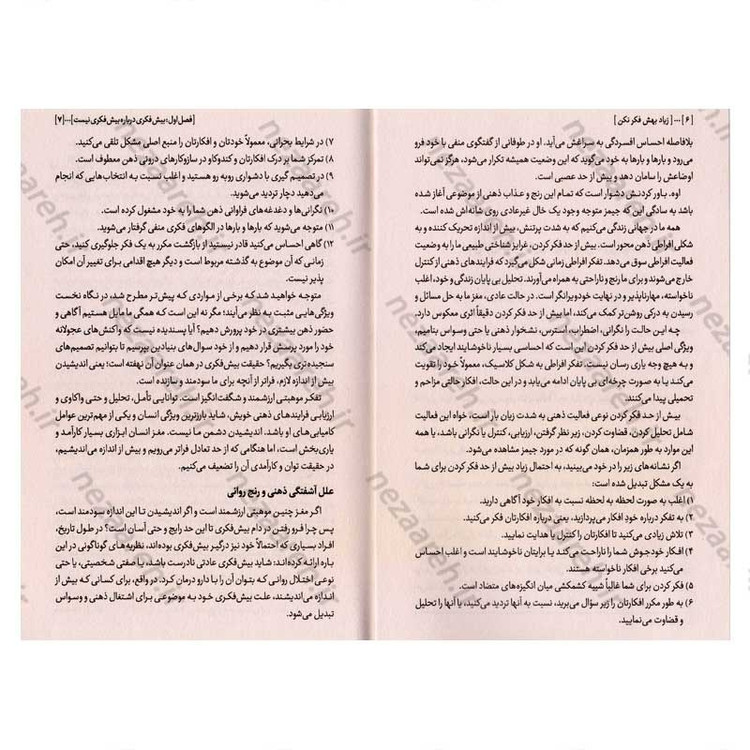 [ ۶ ] ... [ زیاد بهش فکر نکن ]
بلافاصله احساس افسردگی به سراغش می‌آید. او در طوفانی از گفتگوی منفی با خود فرو
می‌رود و بارها و بارها به خود می‌گوید که این وضعیت همیشه تکرار می‌شود، هرگز نمی‌تواند
اوضاعش را سامان دهد و بیش از حد عصبی است.
اوه. باور کردنش دشوار است که تمام این رنج و عذاب ذهنی از موضوعی آغاز شده
باشد به سادگی این که جیمز متوجه وجود یک خال غیرعادی روی شانه‌اش شده است.
همه ما در جهانی زندگی می‌کنیم که به شدت پرتنش، بیش از اندازه تحریک کننده و به
شکلی افراطی ذهن محور است. بیش از حد فکر کردن، غرایز شناختی طبیعی ما را به وضعیت
فعالیت افراطی سوق می‌دهد. تفکر افراطی زمانی شکل می‌گیرد که فرایندهای ذهنی از کنترل
خارج می‌شوند و برای ما رنج و ناراحتی به همراه می‌آورند. تحلیل بی پایان زندگی و خود، اغلب
ناخواسته، مهارناپذیر و در نهایت خودویرانگر است. در حالت عادی، مغز ما به حل مسائل و
رسیدن به درکی روشن‌تر کمک می‌کند، اما بیش از حد فکر کردن دقیقاً اثری معکوس دارد.
چه این حالت را نگرانی، اضطراب، استرس، نشخوار ذهنی یا حتی وسواس بنامیم،
ویژگی اصلی بیش از حد فکر کردن این است که احساسی بسیار ناخوشایند ایجاد می‌کند
و به هیچ وجه یاری رسان نیست. تفکر افراطی به شکل کلاسیک، معمولاً خود را تقویت
می‌کند یا به صورت چرخه‌ای بی پایان ادامه می‌یابد و در این حالت، افکار حالتی مزاحم و
تحمیلی پیدا می‌کنند.
بیش از حد فکر کردن نوعی فعالیت ذهنی به شدت زیان بار است، خواه این فعالیت
شامل تحلیل کردن، قضاوت کردن، زیر نظر گرفتن، ارزیابی، کنترل یا نگرانی باشد، یا همه
این موارد به طور همزمان، همان گونه که در مورد جیمز مشاهده می‌شود.
اگر نشانه‌های زیر را در خود می‌بینید، به احتمال زیاد بیش از حد فکر کردن برای شما
به یک مشکل تبدیل شده است:
۱) اغلب به صورت لحظه به لحظه نسبت به افکار خود آگاهی دارید.
۲) به تفکر درباره خودِ افکار می‌پردازید، یعنی درباره افکارتان فکر می‌کنید.
۳) تلاش زیادی می‌کنید تا افکارتان را کنترل یا هدایت نمایید.
۴) افکار خودجوش شما را ناراحت می‌کند یا برایتان ناخوشایند است و اغلب احساس
می‌کنید برخی افکار ناخواسته هستند.
۵) فکر کردن برای شما غالباً شبیه کشمکشی میان انگیزه‌های متضاد است.
۶) به طور مکرر افکارتان را زیر سؤال می‌برید، نسبت به آنها تردید می‌کنید، یا آنها را تحلیل
و قضاوت می‌نمایید.
[فصل اول: بیش فکری درباره بیش فکری نیست] ... [ ۷ ]
۷) در شرایط بحرانی، معمولاً خودتان و افکارتان را منبع اصلی مشکل تلقی می‌کنید.
۸) تمرکز شما بر درک افکارتان و کندوکاو در سازوکارهای درونی ذهن معطوف است.
۹) در تصمیم گیری با دشواری روبه رو هستید و اغلب نسبت به انتخاب‌هایی که انجام
می‌دهید دچار تردید می‌شوید.
۱۰) نگرانی‌ها و دغدغه‌های فراوانی ذهن شما را به خود مشغول کرده است.
۱۱) متوجه می‌شوید که بارها و بارها در الگوهای فکری منفی گرفتار می‌شوید.
۱۲) گاهی احساس می‌کنید قادر نیستید از بازگشت مکرر به یک فکر جلوگیری کنید، حتی
زمانی که آن موضوع به گذشته مربوط است و دیگر هیچ اقدامی برای تغییر آن امکان
پذیر نیست.
متوجه خواهید شد که برخی از مواردی که پیش‌تر مطرح شد، در نگاه نخست
ویژگی‌هایی مثبت به نظر می‌آیند؛ مگر نه این است که همگی ما مایل هستیم آگاهی و
حضور ذهن بیشتری در خود پرورش دهیم؟ آیا پسندیده نیست که واکنش‌های عجولانه
خود را مورد پرسش قرار دهیم و از خود سوال‌های بنیادین بپرسیم تا بتوانیم تصمیم‌های
سنجیده تری بگیریم؟ حقیقت بیش فکری در همان عنوان آن نهفته است؛ یعنی اندیشیدن
بیش از اندازه لازم، فراتر از آنچه برای ما سودمند و سازنده است.
تفکر موهبتی ارزشمند و شگفت انگیز است. توانایی تأمل، تحلیل و حتی واکاوی و
ارزیابی فرایندهای ذهنی خویش، شاید بارزترین ویژگی انسان و یکی از مهم‌ترین عوامل
کامیابی‌های او باشد. اندیشیدن دشمن ما نیست. مغز انسان ابزاری بسیار کارآمد و
یاری‌بخش است، اما هنگامی که از حد تعادل فراتر می‌رویم و بیش از اندازه می‌اندیشیم،
در حقیقت توان و کارآمدی آن را تضعیف می‌کنیم.
علل آشفتگی ذهنی و رنج روانی
اگر مغز چنین موهبتی ارزشمند است و اگر اندیشیدن تا این اندازه سودمند است،
پس چرا فرو رفتن در دام بیش‌فکری تا این حد رایج و حتی آسان است؟ در طول تاریخ،
افراد بسیاری که احتمالاً خود نیز درگیر بیش‌فکری بوده‌اند، نظریه‌های گوناگونی در این
باره ارائه کرده‌اند: شاید بیش‌فکری عادتی نادرست باشد، یا صفتی شخصیتی، یا حتی
نوعی اختلال روانی که بتوان آن را با دارو درمان کرد. در واقع، برای کسانی که بیش از
اندازه می‌اندیشند، علت بیش‌فکری خود به موضوعی برای اشتغال ذهنی و وسواس
تبدیل می‌شود.
nezaareh.ir